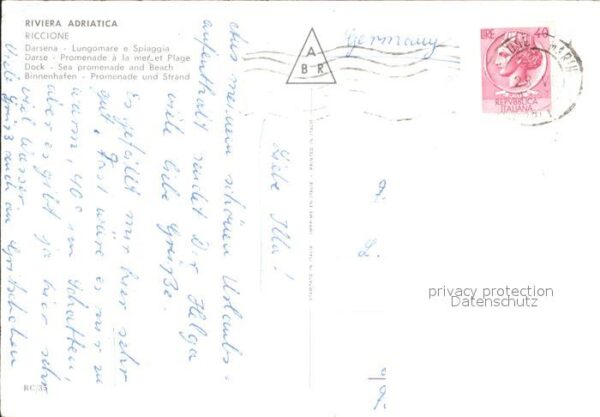 RIVIERA ADRIATICA
RICCIONE
Darsena - Lungomare e Spiaggia
Darse - Promenade à la mer et Plage
Dock - Sea promenade and Beach
Binnenhafen - Promenade und Strand
Germany
A
B R
LIRE 40
REPVBBLICA
ITALIANA
Liebe Illa!
Aus meinem schönen Urlaubs-
aufenthalt sendet Dir Helga
viele liebe Grüße.
Es gefällt mir hier sehr
gut. Fast wäre es mir zu
warm, 40° im Schatten,
aber es gibt ja hier sehr
viel Wasser.
Viele Grüße auch an
privacy protection
Datenschutz
RC/35